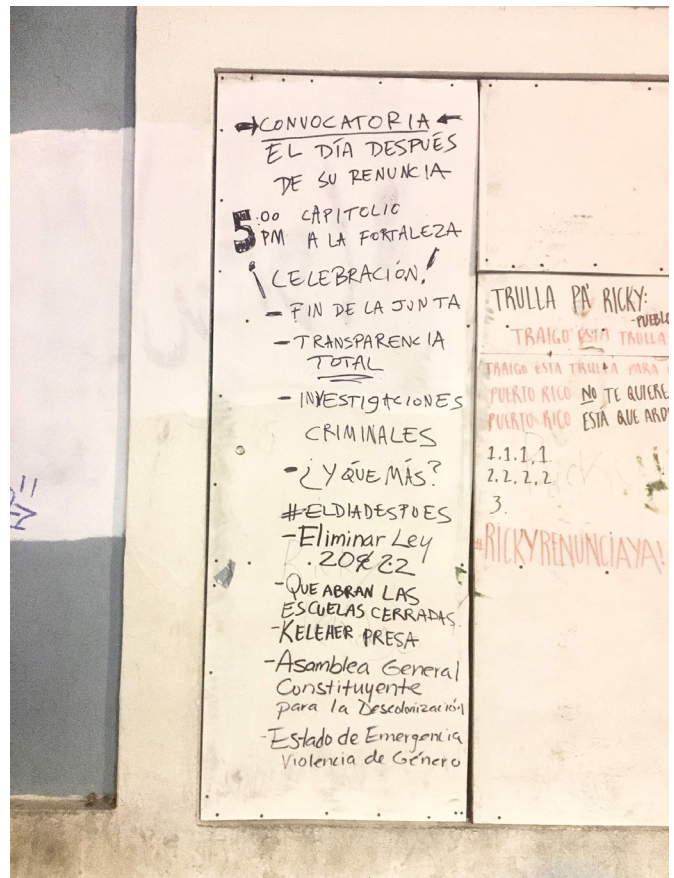 CONVOCATORIA
EL DÍA DESPUÉS
DE SU RENUNCIA
5:00 PM CAPITOLIO
A LA FORTALEZA
¡CELEBRACIÓN!
- FIN DE LA JUNTA
- TRANSPARENCIA
TOTAL
- INVESTIGACIONES
CRIMINALES
- ¿Y QUE MÁS?
#ELDIADESPUES
- Eliminar Ley
20 & 22
- QUE ABRAN LAS
ESCUELAS CERRADAS.
- KELEHER PRESA
- Asamblea General
Constituyente
para la Descolonización
- Estado de Emergencia
Violencia de Género
TRULLA PA' RICKY:
- PUEBLO
TRAIGO ESTA TRULLA
TRAIGO ESTA TRULLA PARA
PUERTO RICO NO TE QUIERE
PUERTO RICO ESTÁ QUE ARD
1.1.1.1.
2.2.2.2
3.
#RICKYRENUNCIAYA!